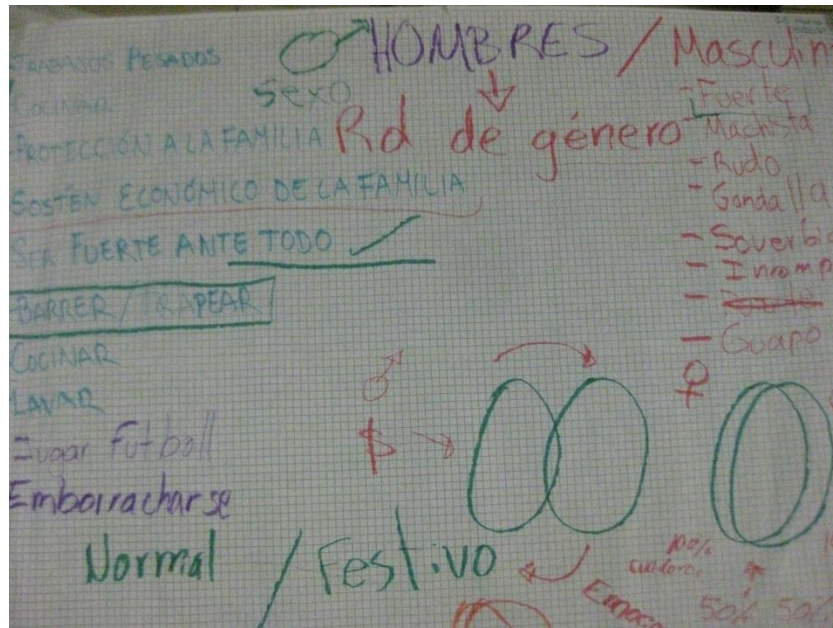 HOMBRES / Masculin
sexo
Rol de género
TRABAJOS PESADOS
COCINAR
PROTECCIÓN A LA FAMILIA
SOSTÉN ECONÓMICO DE LA FAMILIA
SER FUERTE ANTE TODO
BARRER/TRAPEAR
COCINAR
LAVAR
Jugar Futboll
Emborracharse
Normal / Festivo
- Fuerte
- Machista
- Rudo
- Gandalla
- Soverbi
- Inromp
- Guapo
$
100%
50% 50%